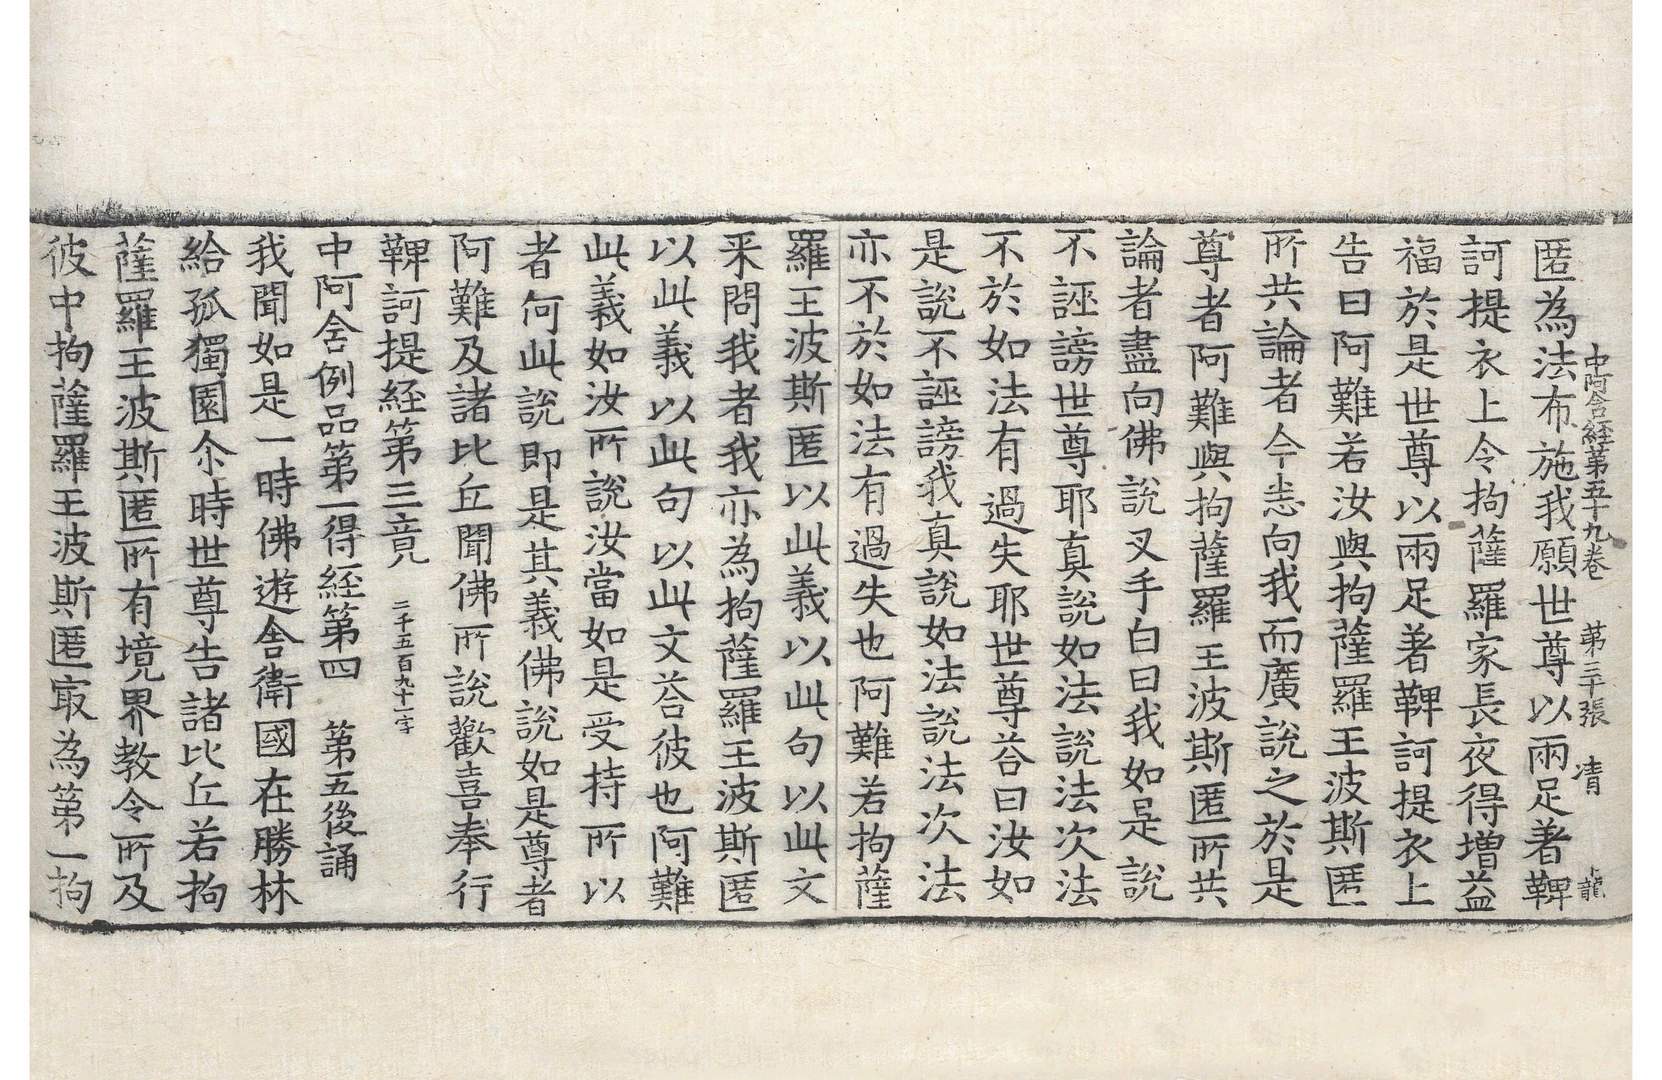 中阿含経第五十九卷 第三十張 清 龍
匿為法布施我願世尊以兩足著鞞
訶提衣上令拘薩羅家長夜得増益
福於是世尊以兩足著鞞訶提衣上
告曰阿難若汝與拘薩羅王波斯匿
所共論者今悉向我而廣說之於是
尊者阿難與拘薩羅王波斯匿所共
論者盡向佛說叉手白曰我如是說
不誣謗世尊耶真說如法說法次法
不於如法有過失耶世尊荅曰汝如
是說不誣謗我真說如法說法次法
亦不於如法有過失也阿難若拘薩
羅王波斯匿以此義以此句以此文
来問我者我亦為拘薩羅王波斯匿
以此義以此句以此文荅彼也阿難
此義如汝所說汝當如是受持所以
者何此說即是其義佛說如是尊者
阿難及諸比丘聞佛所說歡喜奉行
鞞訶提経第三竟 二千五百九十一字
中阿含例品第一得経第四 第五後誦
我聞如是一時佛遊舍衛國在勝林
給孤獨園尒時世尊告諸比丘若拘
薩羅王波斯匿所有境界教令所及
彼中拘薩羅王波斯匿㝡為第一拘